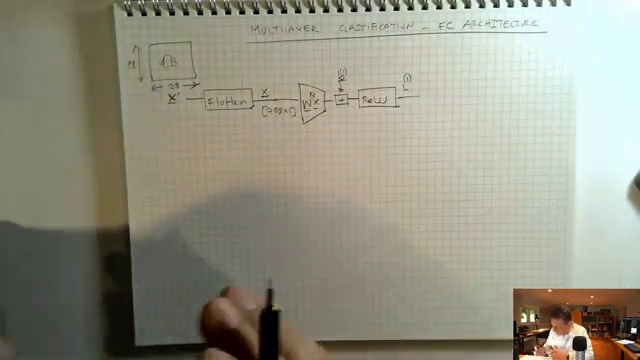 MULTILAYER CLASSIFICATION – FC ARCHITECTURE
28
28
x'
Flatten
x
W x
+
ReLU
h(1)